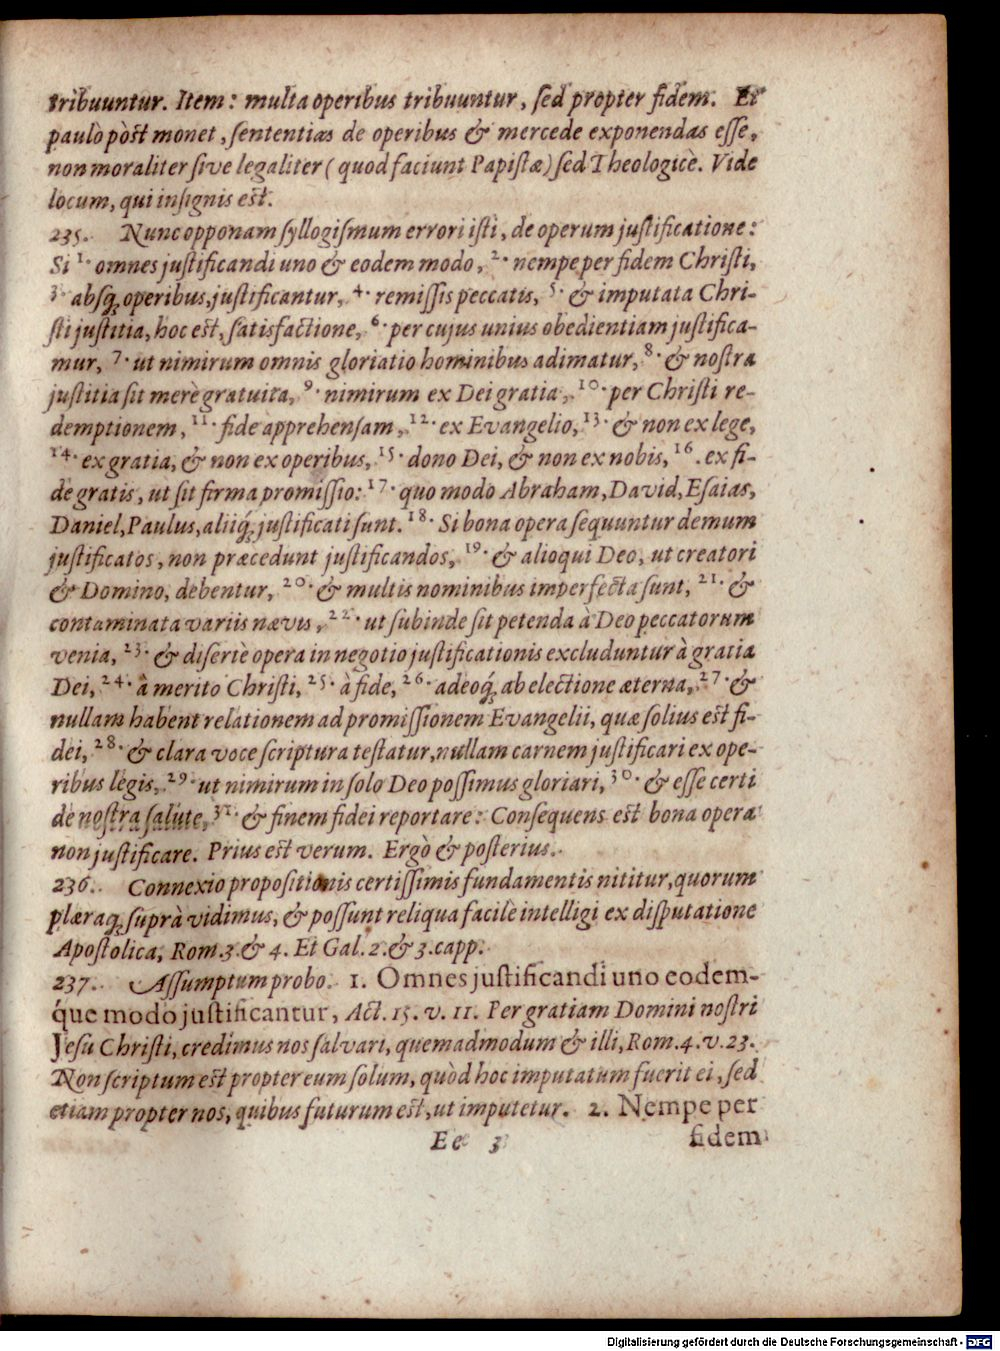 tribuuntur. Item: multa operibus tribuuntur, ſed propter fidem. Et
paulò pòſt monet, ſententias de operibus & mercede exponendas eſſe,
non moraliter ſive legaliter (quod faciunt Papiſtæ) ſed Theologicè. Vide
locum, qui inſignis eſt.
235. Nunc opponam ſyllogiſmum errori iſti, de operum juſtificatione:
Si 1. omnes juſtificandi uno & eodem modo, 2. nempe per fidem Chriſti,
3. abſq́; operibus, juſtificantur, 4. remiſſis peccatis, 5. & imputata Chri-
ſti juſtitia, hoc eſt, ſatisfactione, 6. per cujus unius obedientiam juſtifica-
mur, 7. ut nimirum omnis gloriatio hominibus adimatur, 8. & noſtra
juſtitia ſit merè gratuita, 9. nimirum ex Dei gratia, 10. per Chriſti re-
demptionem, 11. fide apprehenſam, 12. ex Evangelio, 13. & non ex lege,
14. ex gratia, & non ex operibus, 15. dono Dei, & non ex nobis, 16. ex fi-
de gratis, ut ſit firma promiſſio: 17. quo modo Abraham, David, Eſaias,
Daniel, Paulus, aliiq́; juſtificati ſunt. 18. Si bona opera ſequuntur demum
juſtificatos, non præcedunt juſtificandos, 19. & alioqui Deo, ut creatori
& Domino, debentur, 20. & multis nominibus imperfecta ſunt, 21. &
contaminata variis nævis, 22. ut ſubinde ſit petenda à Deo peccatorum
venia, 23. & diſertè opera in negotio juſtificationis excluduntur à gratia
Dei, 24. à merito Chriſti, 25. à fide, 26. adeoq́; ab electione æterna, 27. &
nullam habent relationem ad promiſſionem Evangelii, quæ ſolius eſt fi-
dei, 28. & clara voce ſcriptura teſtatur, nullam carnem juſtificari ex ope-
ribus legis, 29. ut nimirum in ſolo Deo poſſimus gloriari, 30. & eſſe certi
de noſtra ſalute, 31. & finem fidei reportare: Conſequens eſt bona opera
non juſtificare. Prius eſt verum. Ergò & poſterius.
236. Connexio propoſitionis certiſſimis fundamentis nititur, quorum
plæraq́; ſuprà vidimus, & poſſunt reliqua facilè intelligi ex diſputatione
Apoſtolica, Rom. 3. & 4. Et Gal. 2. & 3. capp.
237. Aſſumptum probo. 1. Omnes juſtificandi uno eodem-
q́ue modo juſtificantur, Act. 15. v. 11. Per gratiam Domini noſtri
Jeſu Chriſti, credimus nos ſalvari, quemadmodum & illi, Rom. 4. v. 23.
Non ſcriptum eſt propter eum ſolum, quòd hoc imputatum fuerit ei, ſed
etiam propter nos, quibus futurum eſt, ut imputetur. 2. Nempe per
Ee 3 fidem
Digitalisierung gefördert durch die Deutsche Forschungsgemeinschaft - DFG